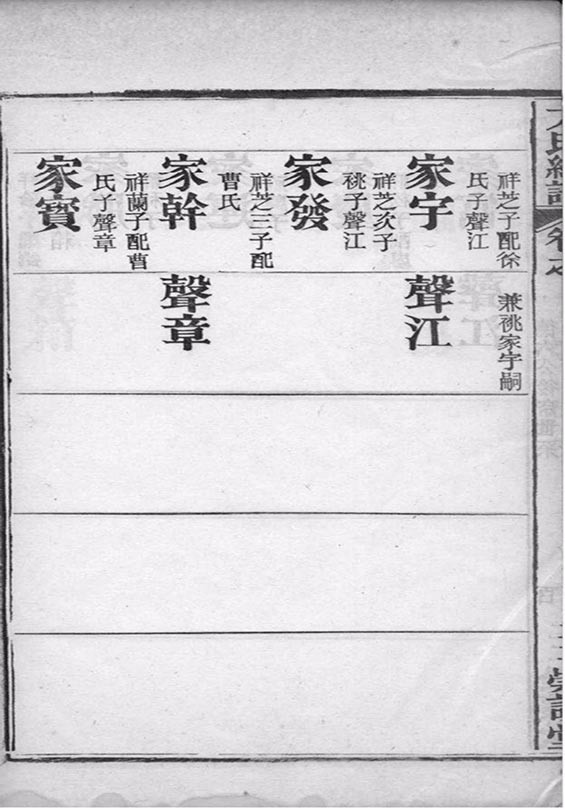 祥芝子配徐
氏子聲江
家宇
祥芝次子
祧子聲江
家發
祥芝三子配
曹氏
家幹
祥蘭子配曹
氏子聲章
家寳
兼祧家宇嗣
聲江
聲章